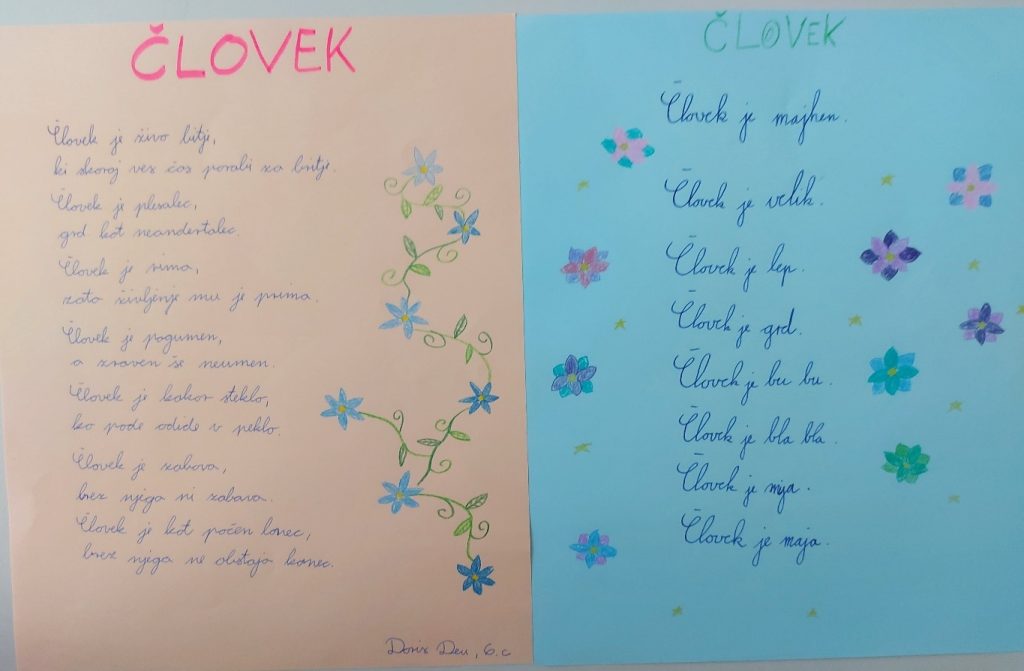 ČLOVEK
Človek je živo bitje,
ki skoraj ves čas porabi za britje.
Človek je plesalec,
grd kot neandertalec.
Človek je rima,
zato življenje mu je prima.
Človek je pogumen,
a zraven še neumen.
Človek je kakor steklo,
ko pade odide v peklo.
Človek je zabava,
brez njega ni zabava.
Človek je kot počen lonec,
brez njega ne obstaja konec.
6.c
ČLOVEK
Človek je majhen.
Človek je velik.
Človek je lep.
Človek je grd.
Človek je bu bu.
Človek je bla bla.
Človek je mija.
Človek je maja.